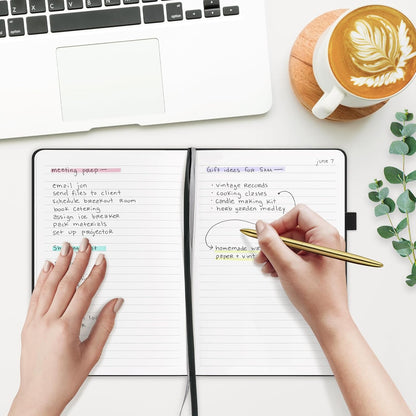 meeting prep
email jon
send files to client
schedule breakout room
book catering
assign ice breaker
pack materials
set up projector
june 7
Gift ideas for Sam
• vintage records
• cooking classes
• candle making kit
• herb garden
homemade
paper +